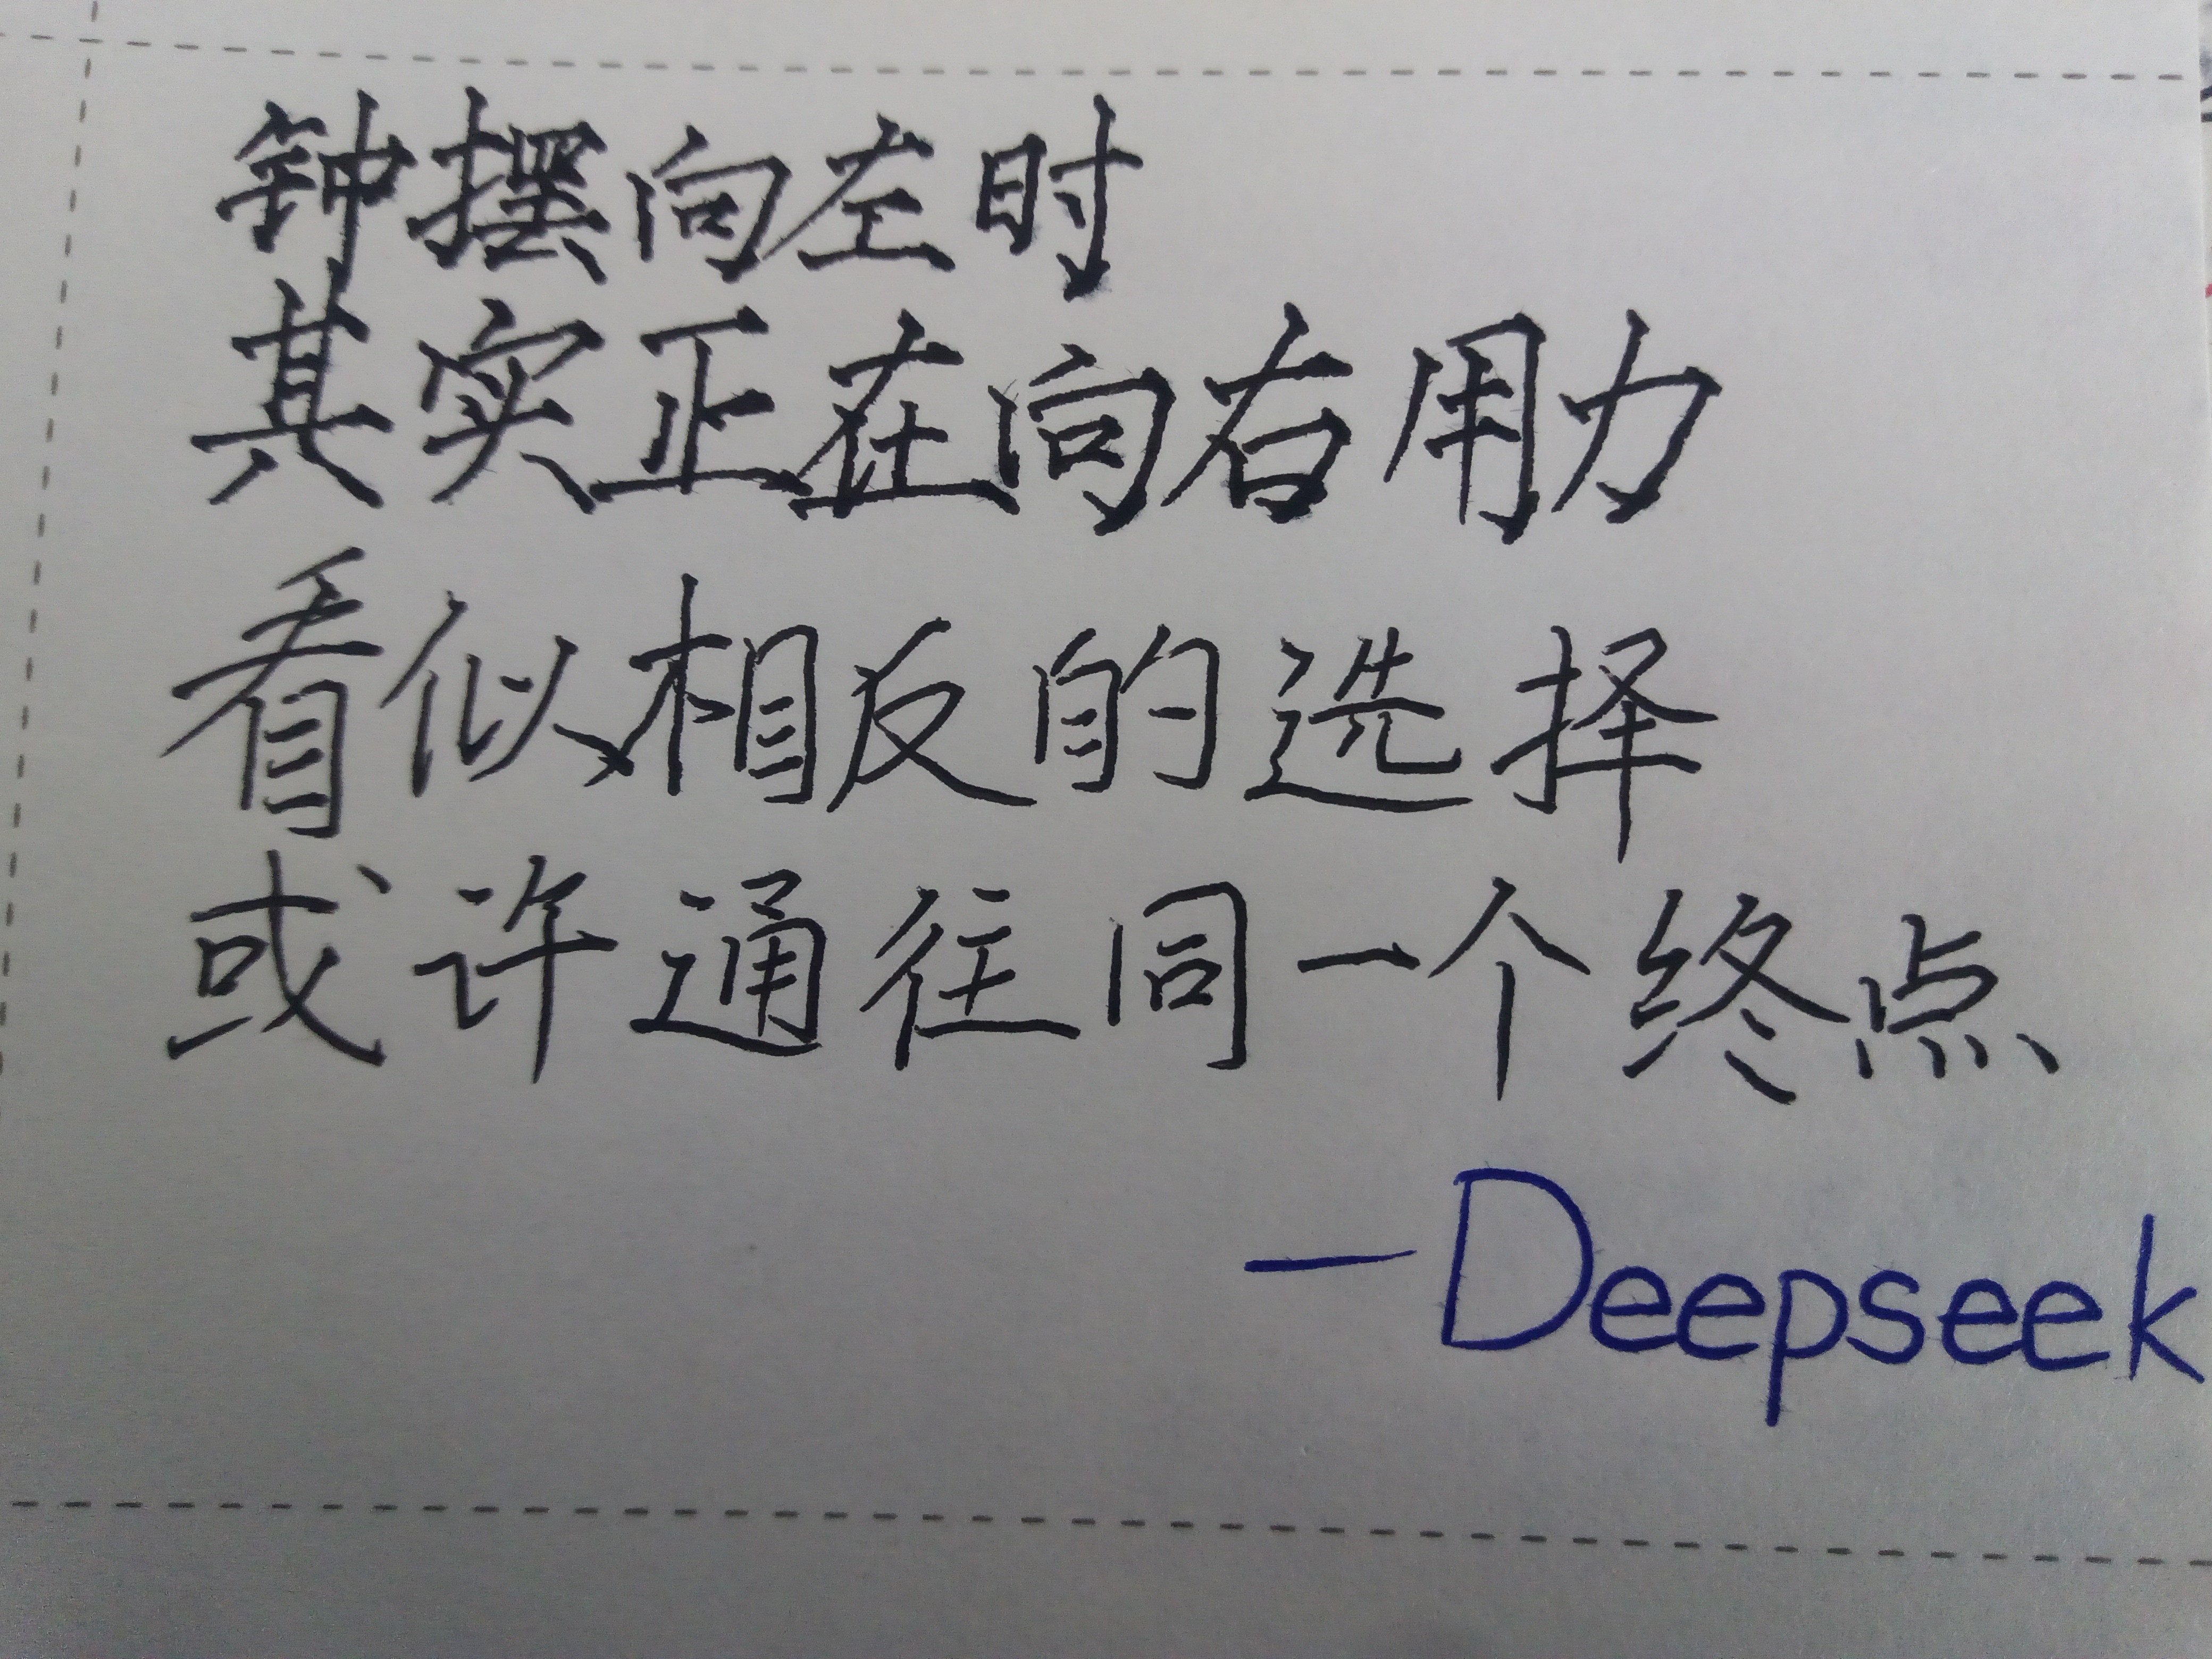 钟摆向左时
其实正在向右用力
看似相反的选择
或许通往同一个终点
—Deepseek